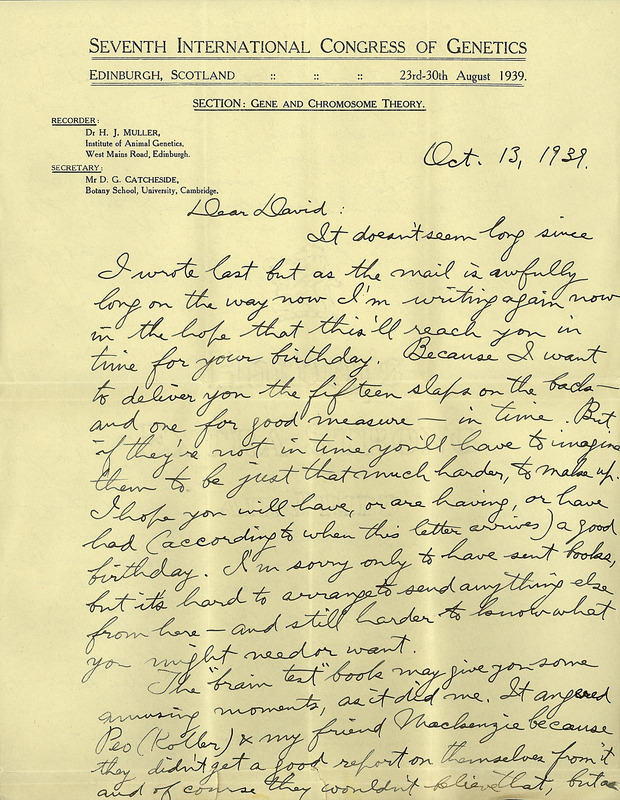 SEVENTH INTERNATIONAL CONGRESS OF GENETICS
EDINBURGH, SCOTLAND :: :: :: 23rd-30th August 1939.
SECTION: GENE AND CHROMOSOME THEORY.
RECORDER:
Dr H. J. MULLER,
Institute of Animal Genetics,
West Mains Road, Edinburgh.
SECRETARY:
Mr D. G. CATCHESIDE,
Botany School, University, Cambridge.
Oct. 13, 1939.
Dear David:
It doesn't seem long since
I wrote last but as the mail is awfully
long on the way now I'm writing again now
in the hope that this'll reach you in
time for your birthday. Because I want
to deliver you the fifteen slaps on the back—
and one for good measure — in time. But
if they're not in time you'll have to imagine
them to be just that much harder, to make up.
I hope you will have, or are having, or have
had (according to when this letter arrives) a good
birthday. I'm sorry only to have sent books,
but it's hard to arrange to send anything else
from here — and still harder to know what
you might need or want.
The "brain test" book may give you some
amusing moments, as it did me. It angered
Peo (Koller) & my friend Mackenzie because
they didn't get a good report on themselves from it
and of course they wouldn't believe that, but as